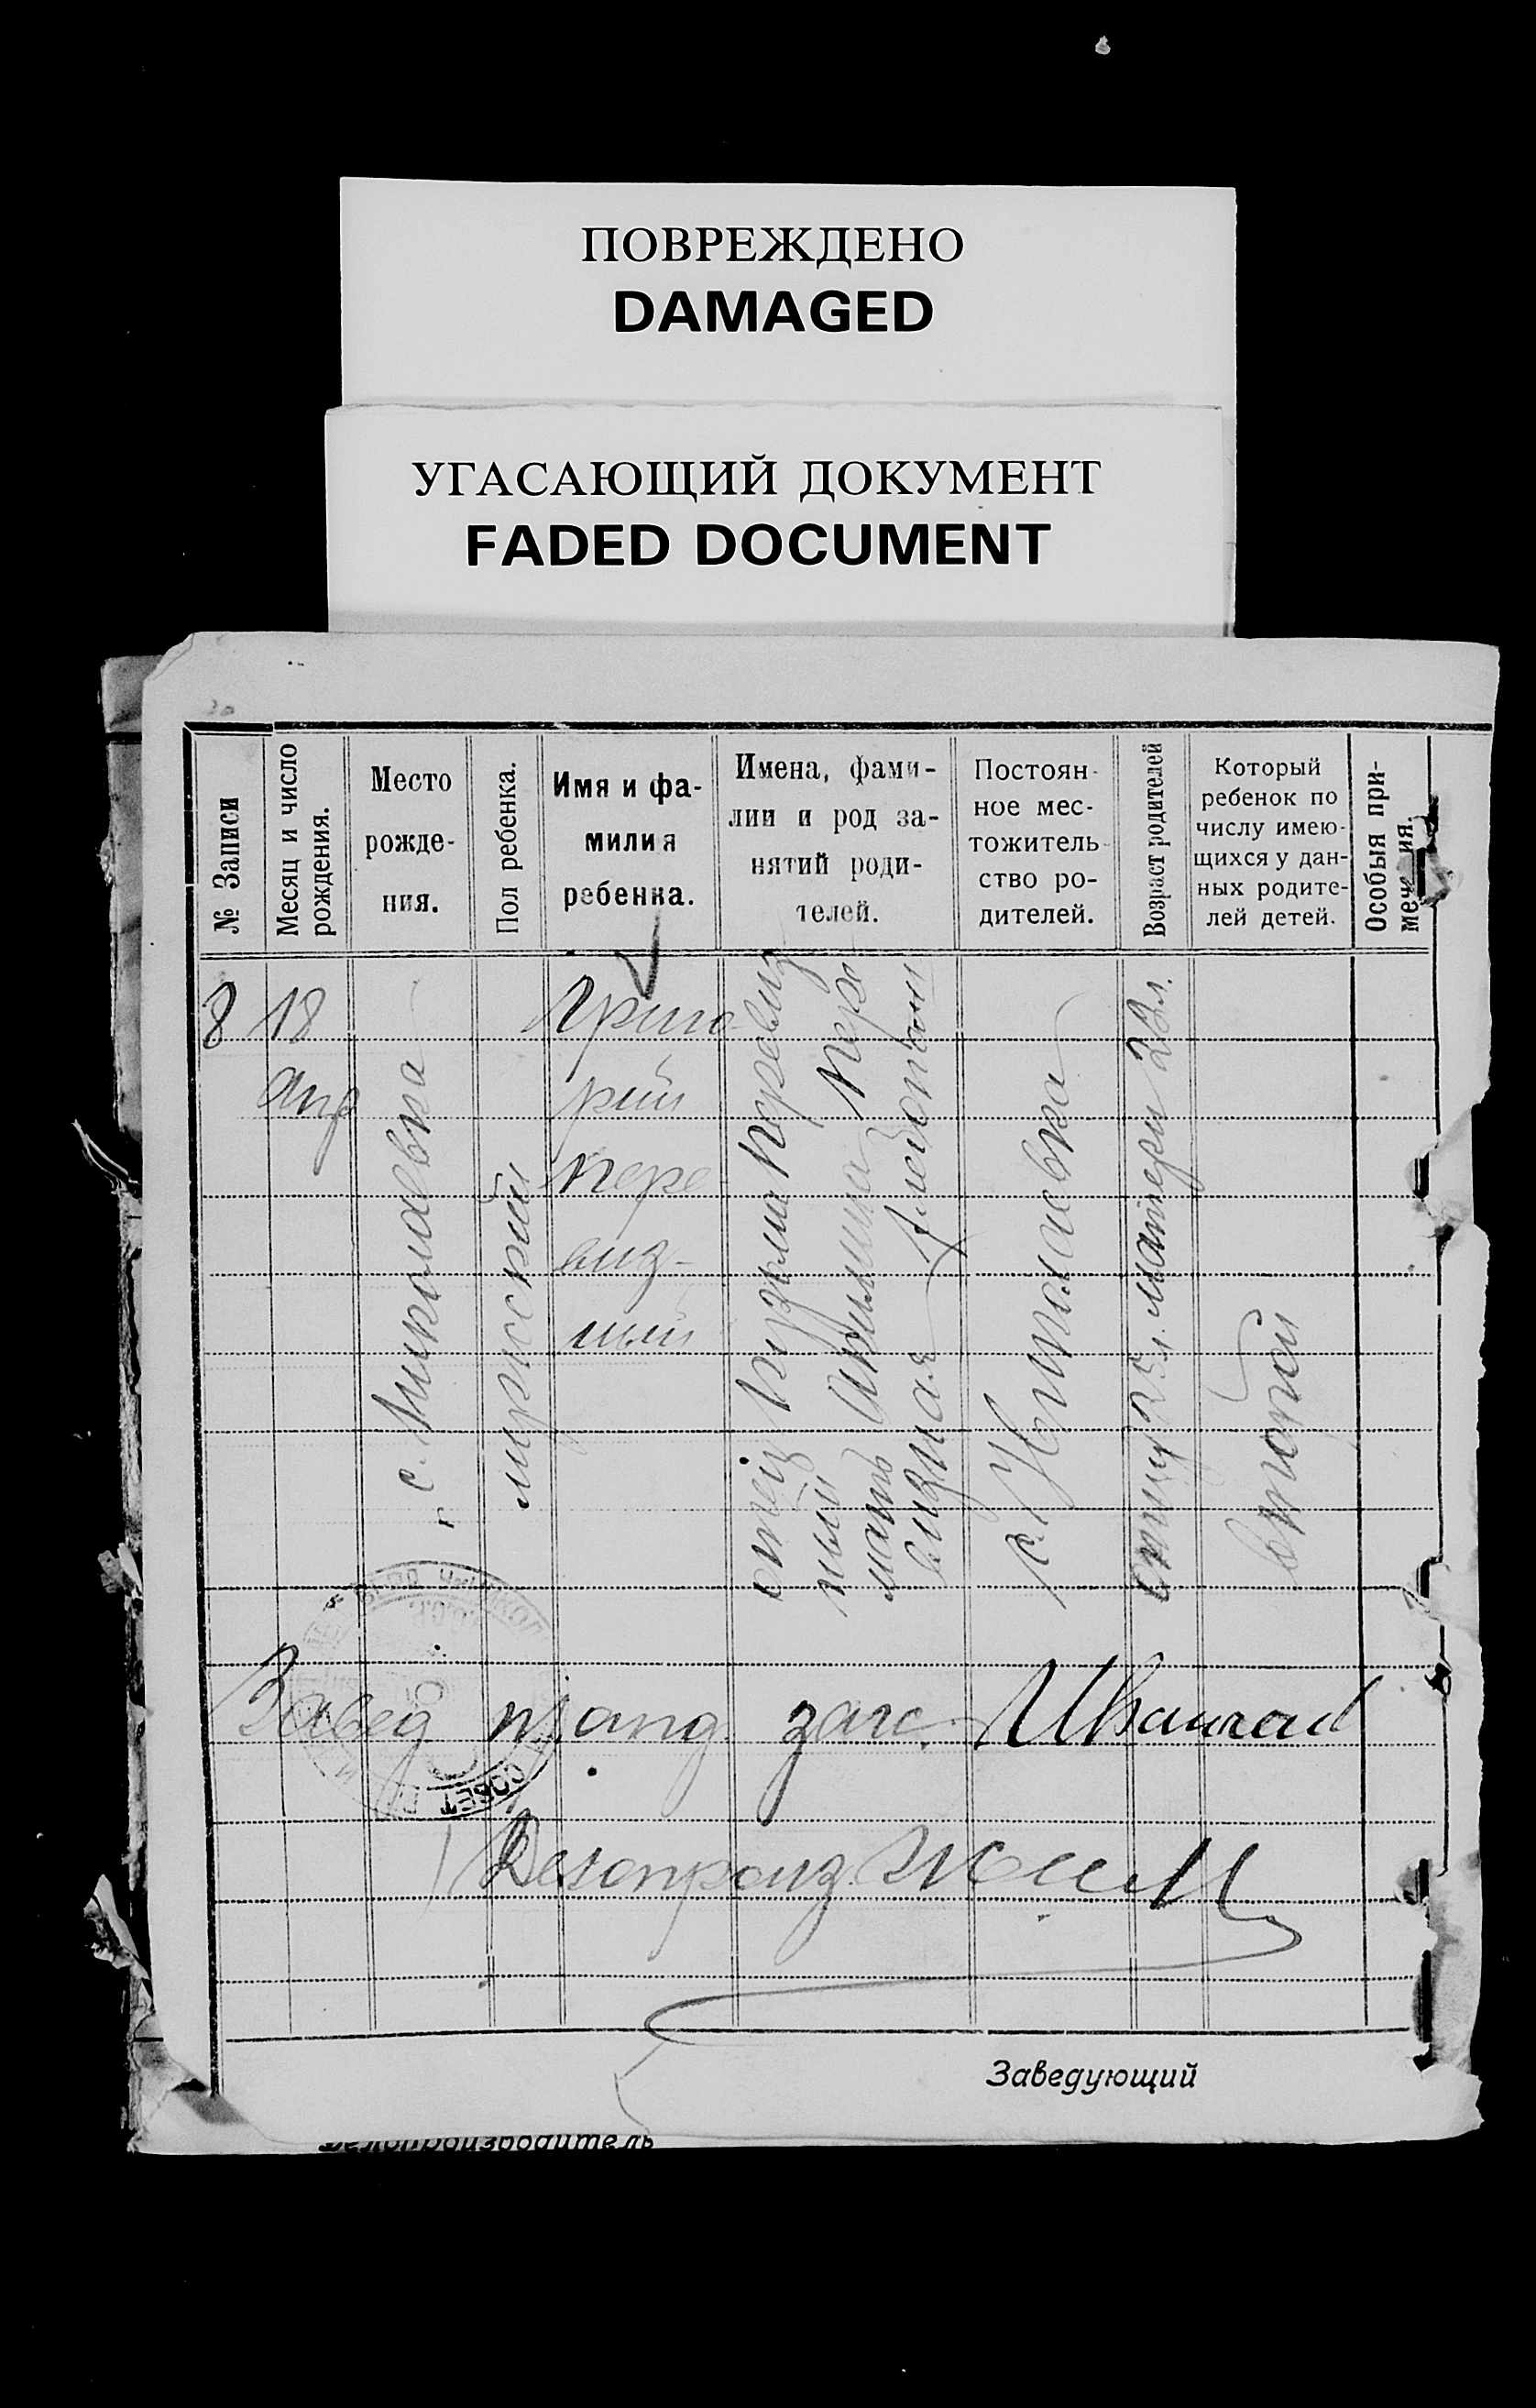 ПОВРЕЖДЕНО
DAMAGED
УГАСАЮЩИЙ ДОКУМЕНТ
FADED DOCUMENT
№ Записи
Месяц и число
рождения.
Место
рожде-
ния.
Пол ребенка.
Имя и фа-
милия
ребенка.
Имена, фами-
лии и род за-
нятий роди-
телей.
Постоян-
ное мес-
тожитель-
ство ро-
дителей.
Возраст родителей
Который
ребенок по
числу имею-
щихся у дан-
ных родите-
лей детей.
Особыя при-
ме
ия.
8
18
апр
с. Николаевка
мужской
Григо-
рий
Пере
виз-
ный
отец Кузьма Перевиз
ный
мать Акилина Пере
визная Хлебопаш
с. Николаевка
отцу 25 л. матери 23 л.
второй
Завед п/отд загс.
СОВЕТ
Делопроизв.
Заведующий
Делопроизводитель